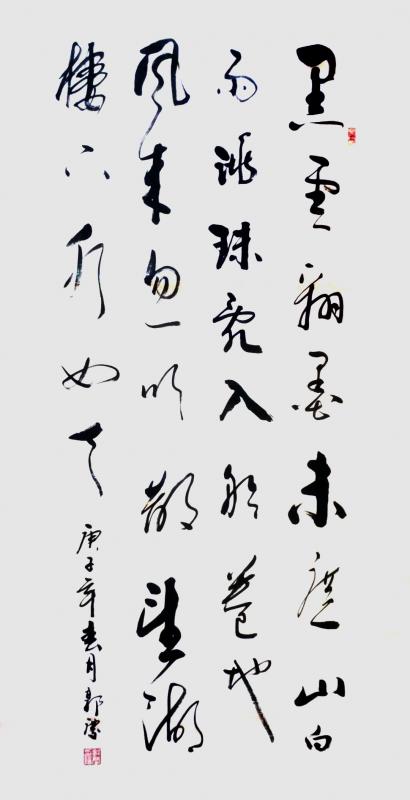 黑雲翻墨未遮山白
雨跳珠亂入船卷地
風來忽吹散望湖
樓下水如天
庚子年春月郭